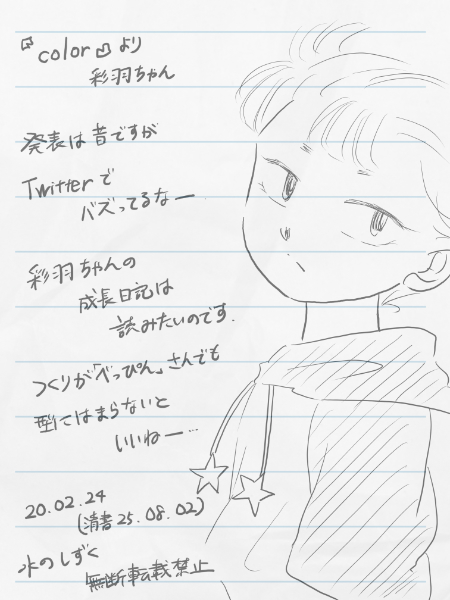 『color』より
彩羽ちゃん
発表は昔ですが
Twitterで
バズってるなー
彩羽ちゃんの
成長日記は
読みたいのです.
つくりが「べっぴん」さんでも
型にはまらないと
いいねー…
20.02.24
(清書25.08.02)
水のしずく
無断転載禁止